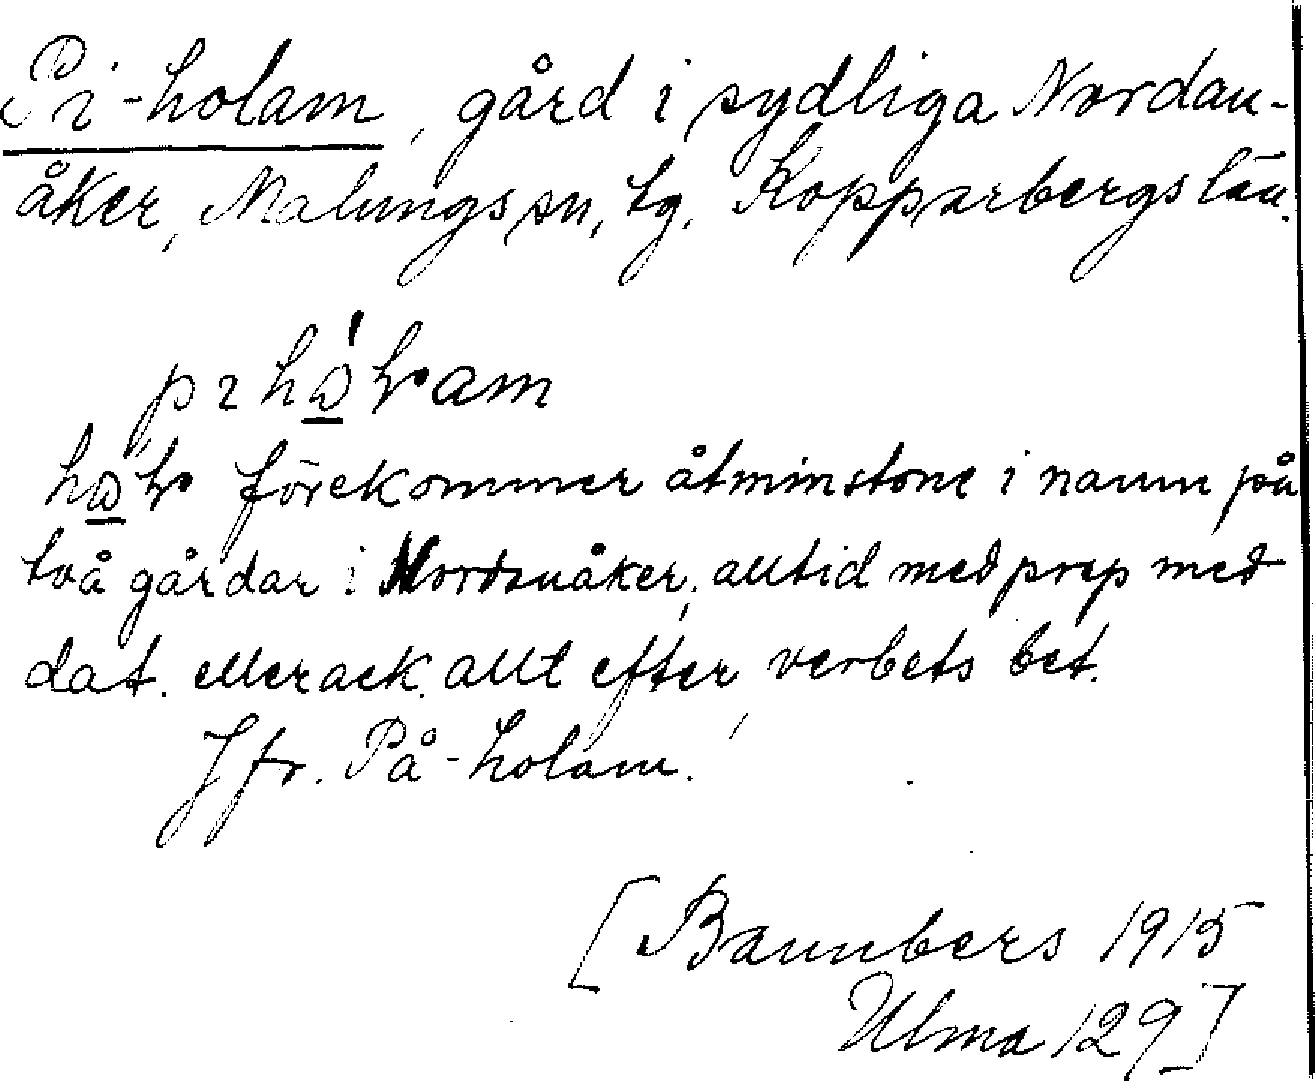 Pi-holam, gård i sydliga Nordan-
åker, Malungs sn, tg. Kopparbergs län.
hω̲'ɽ förekommer åtminstone i namn på
två gårdar i Nordanåker, alltid med prep med
dat. eller ack. allt efter verbets bet.
Jfr. På-holam.
[Bannbers 1915
Ulma 129]